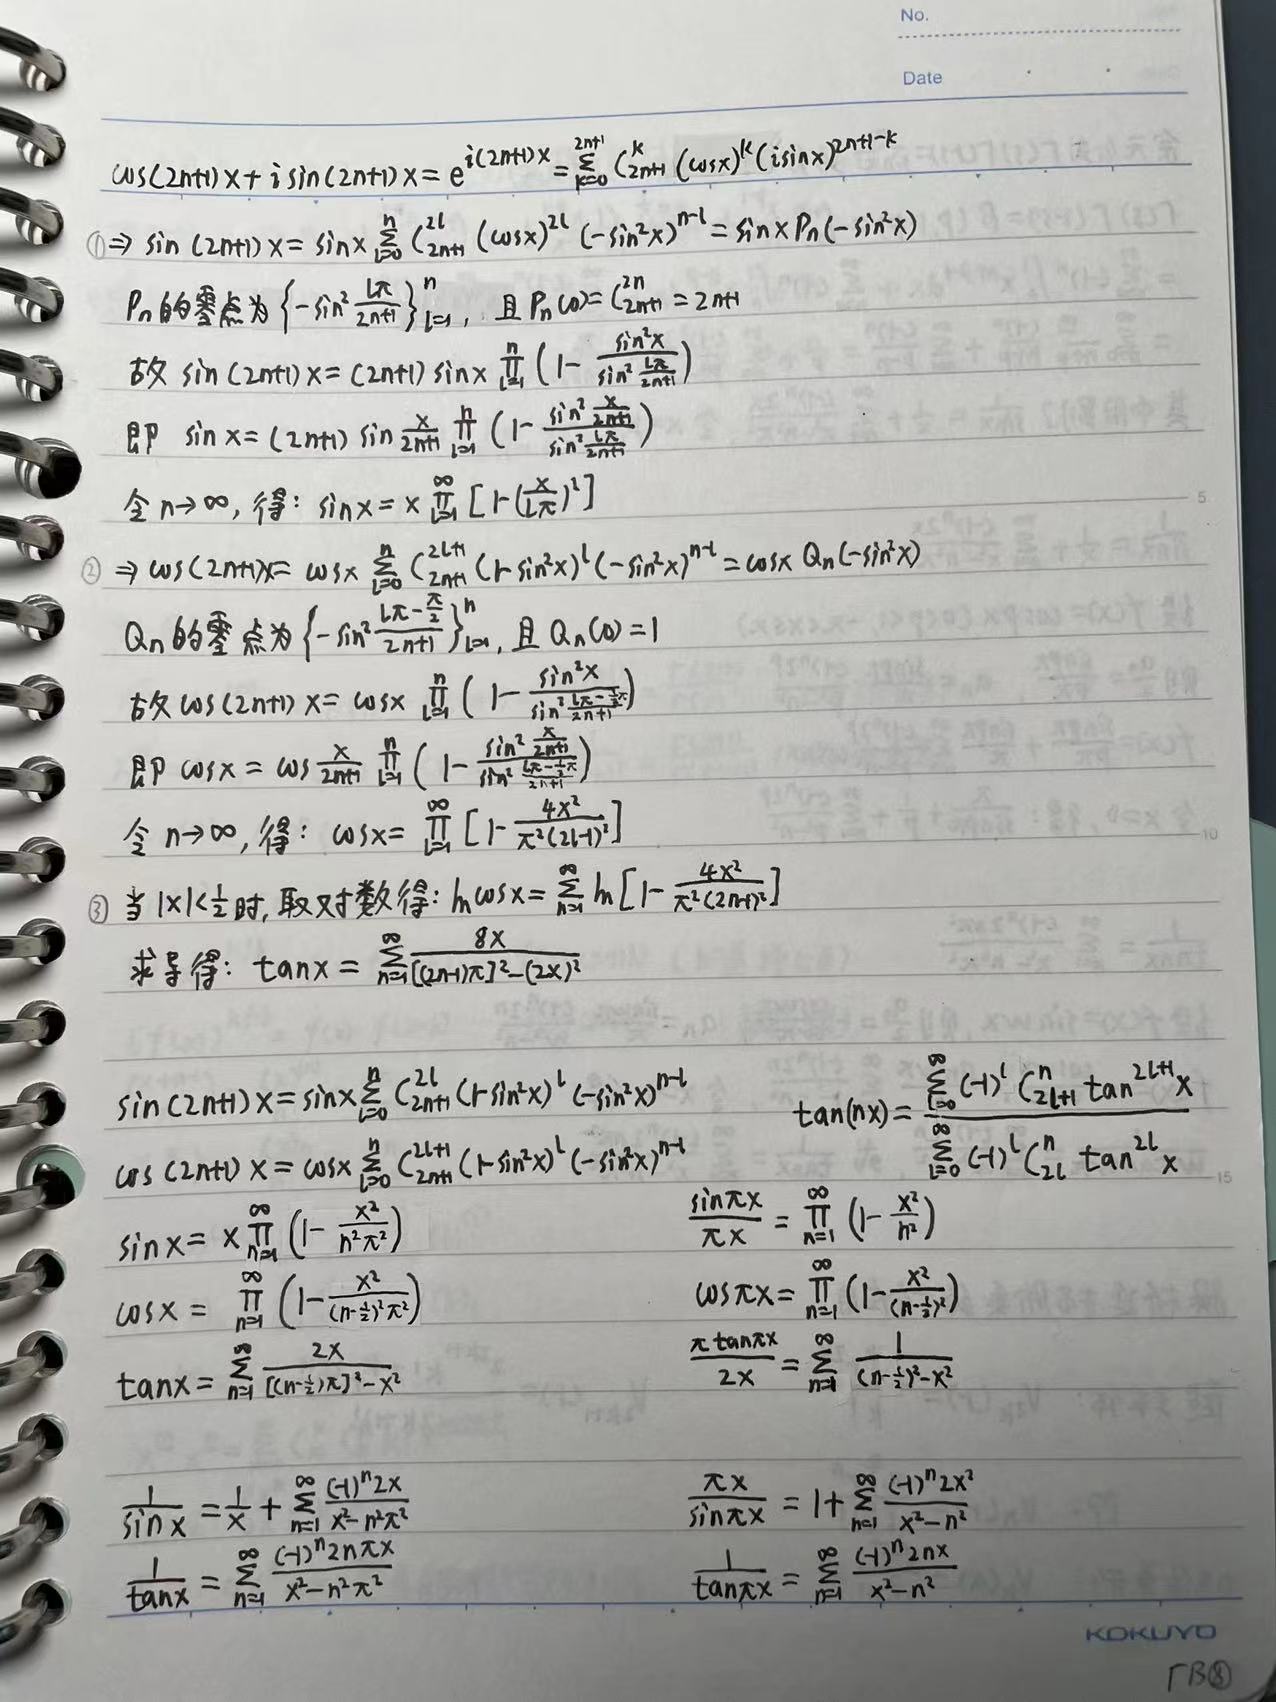 No.
Date
cos(2n+1)x + i sin(2n+1)x = e^{i(2n+1)x} = \sum_{k=0}^{2n+1} C_{2n+1}^{k} (cosx)^k (i sinx)^{2n+1-k}
① ⇒ sin(2n+1)x = sinx \sum_{l=0}^{n} C_{2n+1}^{2l} (cosx)^{2l} (-sin²x)^{n-l} = sinx P_n(-sin²x)
P_n的零点为 {-sin² \frac{lπ}{2n+1}}_{l=1}^{n}, 且P_n(0) = C_{2n+1}^{2n} = 2n+1
故 sin(2n+1)x = (2n+1) sinx \prod_{l=1}^{n} (1 - \frac{sin²x}{sin² \frac{lπ}{2n+1}})
即 sinx = (2n+1) sin \frac{x}{2n+1} \prod_{l=1}^{n} (1 - \frac{sin² \frac{x}{2n+1}}{sin² \frac{lπ}{2n+1}})
令 n→∞, 得: sinx = x \prod_{l=1}^{∞} [1-(\frac{x}{lπ})²]
5
② ⇒ cos(2n+1)x = cosx \sum_{l=0}^{n} C_{2n+1}^{2l+1} (1-sin²x)^l (-sin²x)^{n-l} = cosx Q_n(-sin²x)
Q_n的零点为 {-sin² \frac{lπ-\frac{π}{2}}{2n+1}}_{l=1}^{n}, 且Q_n(0) = 1
故 cos(2n+1)x = cosx \prod_{l=1}^{n} (1 - \frac{sin²x}{sin² \frac{lπ-\frac{1}{2}π}{2n+1}})
即 cosx = cos \frac{x}{2n+1} \prod_{l=1}^{n} (1 - \frac{sin² \frac{x}{2n+1}}{sin² \frac{lπ-\frac{1}{2}π}{2n+1}})
令 n→∞, 得: cosx = \prod_{l=1}^{∞} [1 - \frac{4x²}{π²(2l-1)²}]
10
③ 当 |x|<\frac{1}{2}时, 取对数得: ln cosx = \sum_{n=1}^{∞} ln [1 - \frac{4x²}{π²(2n-1)²}]
求导得: tanx = \sum_{n=1}^{∞} \frac{8x}{[(2n-1)π]²-(2x)²}
sin(2n+1)x = sinx \sum_{l=0}^{n} C_{2n+1}^{2l} (1-sin²x)^l (-sin²x)^{n-l}
tan(nx) = \frac{\sum_{l=0}^{∞} (-1)^l C_{2l+1}^{n} tan^{2l+1}x}{\sum_{l=0}^{∞} (-1)^l C_{2l}^{n} tan^{2l}x}
cos(2n+1)x = cosx \sum_{l=0}^{n} C_{2n+1}^{2l+1} (1-sin²x)^l (-sin²x)^{n-l}
15
sinx = x \prod_{n=1}^{∞} (1 - \frac{x²}{n²π²})
\frac{sinπx}{πx} = \prod_{n=1}^{∞} (1 - \frac{x²}{n²})
cosx = \prod_{n=1}^{∞} (1 - \frac{x²}{(n-\frac{1}{2})²π²})
cosπx = \prod_{n=1}^{∞} (1 - \frac{x²}{(n-\frac{1}{2})²})
tanx = \sum_{n=1}^{∞} \frac{2x}{[(n-\frac{1}{2})π]²-x²}
\frac{π tanπx}{2x} = \sum_{n=1}^{∞} \frac{1}{(n-\frac{1}{2})²-x²}
\frac{1}{sinx} = \frac{1}{x} + \sum_{n=1}^{∞} \frac{(-1)^n 2x}{x²-n²π²}
\frac{πx}{sinπx} = 1 + \sum_{n=1}^{∞} \frac{(-1)^n 2x²}{x²-n²}
\frac{1}{tanx} = \sum_{n=1}^{∞} \frac{(-1)^n 2nπx}{x²-n²π²}
\frac{1}{tanπx} = \sum_{n=1}^{∞} \frac{(-1)^n 2nx}{x²-n²}
KOKUYO
ΓB⑧